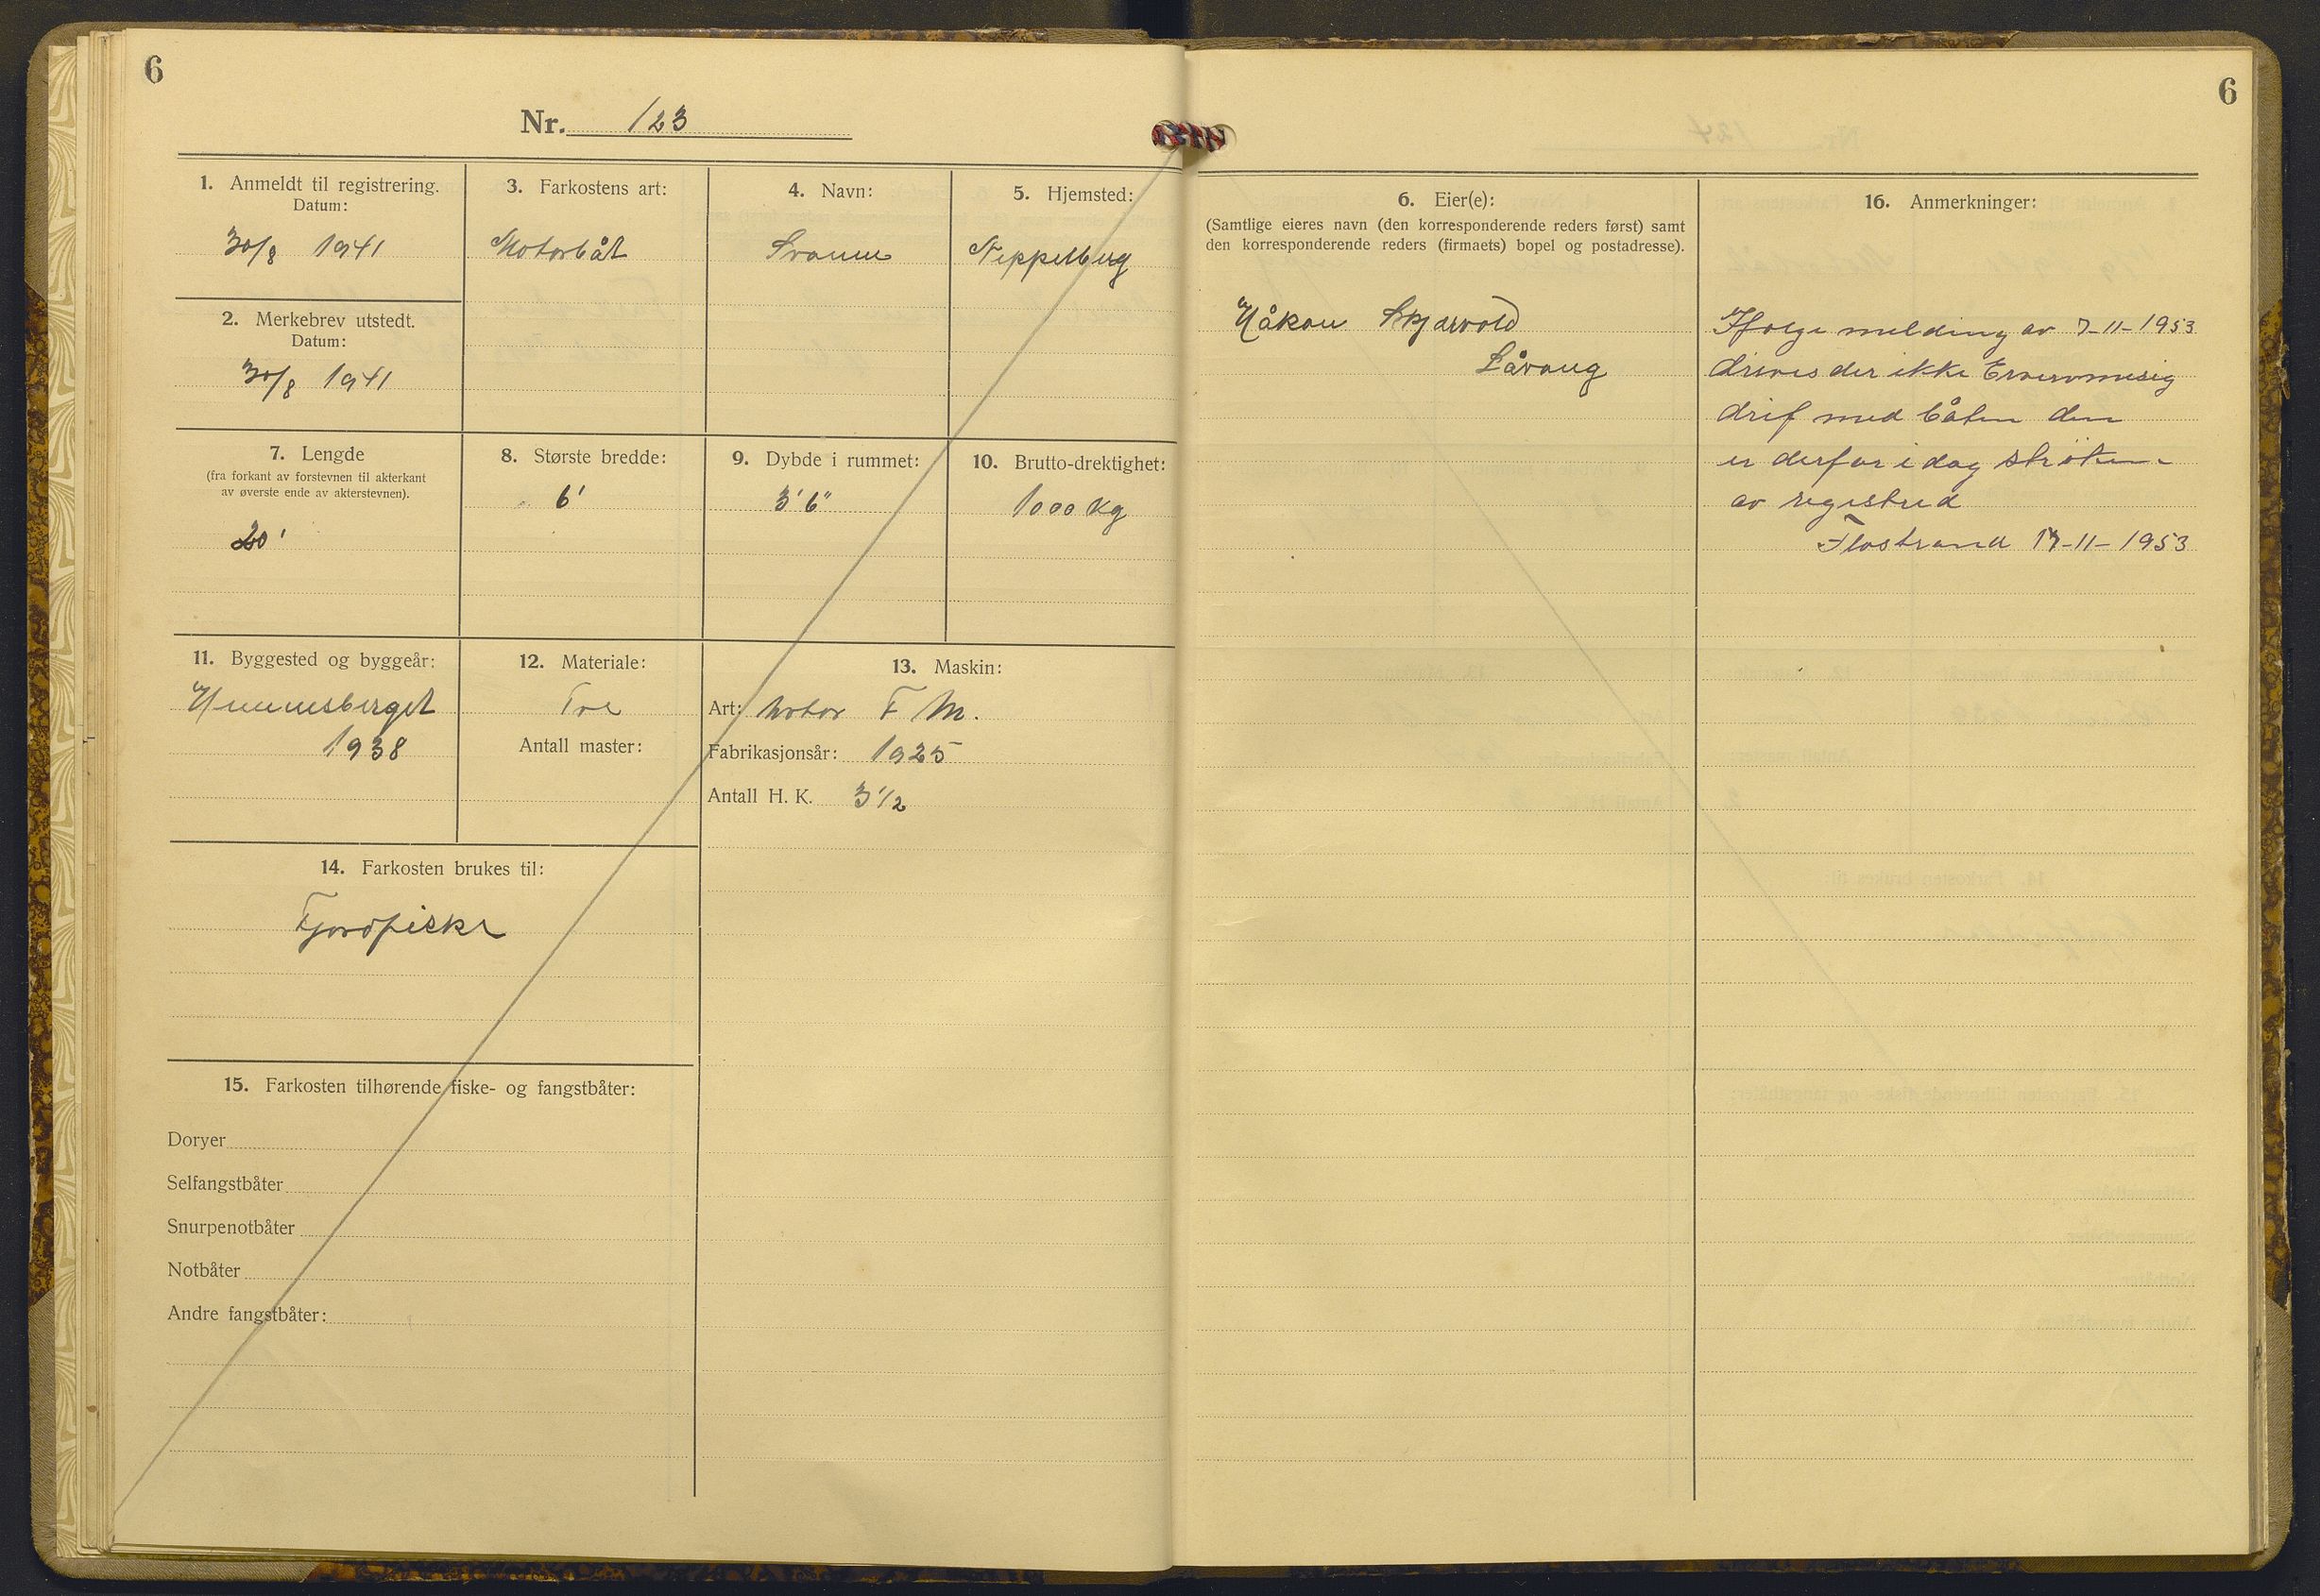 6
Nr. 123
1. Anmeldt til registrering.
Datum:
30/8 1941
2. Merkebrev utstedt.
Datum:
30/8 1941
3. Farkostens art:
Motorbåt
4. Navn:
Svanen
5. Hjemsted:
Neppelberg
7. Lengde
(fra forkant av forstevnen til akterkant
av øverste ende av akterstevnen).
20'
8. Største bredde:
6'
9. Dybde i rummet:
3'6"
10. Brutto-drektighet:
1000 Kg
11. Byggested og byggeår:
Hemnesberget
1938
12. Materiale:
Tre
Antall master:
13. Maskin:
Art: Motor F M.
Fabrikasjonsår: 1925
Antall H. K. 3 1/2
14. Farkosten brukes til:
Fjordfiske
15. Farkosten tilhørende fiske- og fangstbåter:
Doryer
Selfangstbåter
Snurpenotbåter
Notbåter
Andre fangstbåter:
6
6. Eier(e):
(Samtlige eieres navn (den korresponderende reders først) samt
den korresponderende reders (firmaets) bopel og postadresse).
Håkon Skjærvold
Låvong
16. Anmerkninger:
Ifølge melding av 7-11-1953
drives der ikke Ervervmesig
drif med båten den
er derfor i dag strøken
av registred
Flostrand 17-11-1953